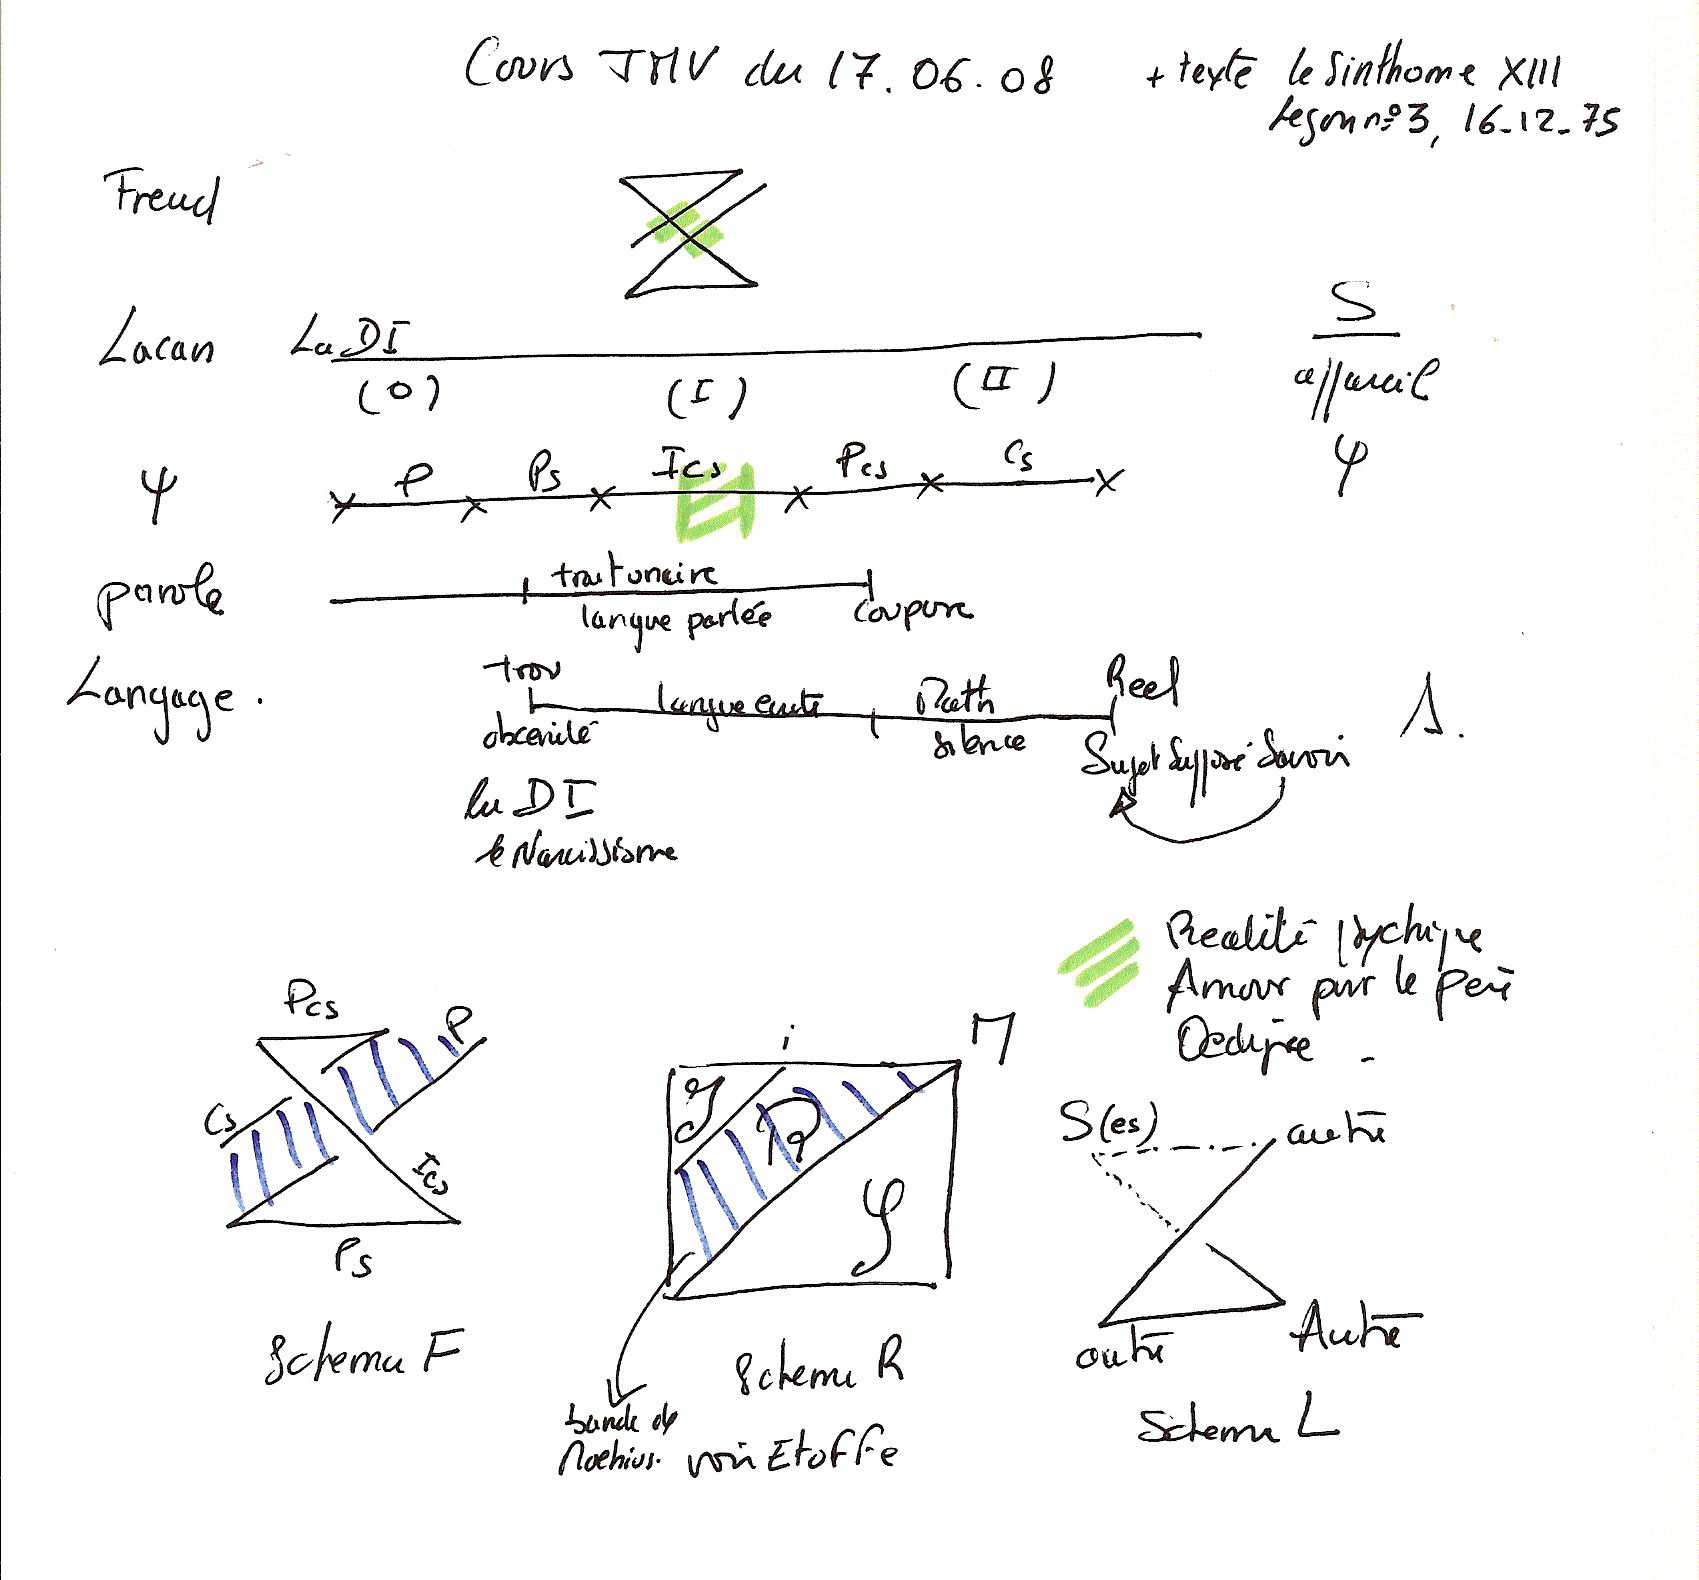 Cours JMV du 17.06.08
+ texte le Sinthome XIII
Leçon n°3, 16-12-75
Freud
Lacan La DI
(0) (I) (II)
S
appareil
ψ
P Ps Ics Pcs Cs
φ
parole
trait unaire
langue parlée
coupure
Langage.
trou
obcenité
langue ecrite
Math
silence
Reel
Sujet Supposé Savoir
la DI
le Narcissisme
Realité psychique
Amour pour le père
Oedipe
Pcs
P
Cs
Ics
Ps
Schema F
i
M
J
R
φ
Schema R
bande de
Moebius. voir Etoffe
S(es)
autre
autre
Autre
Schema L